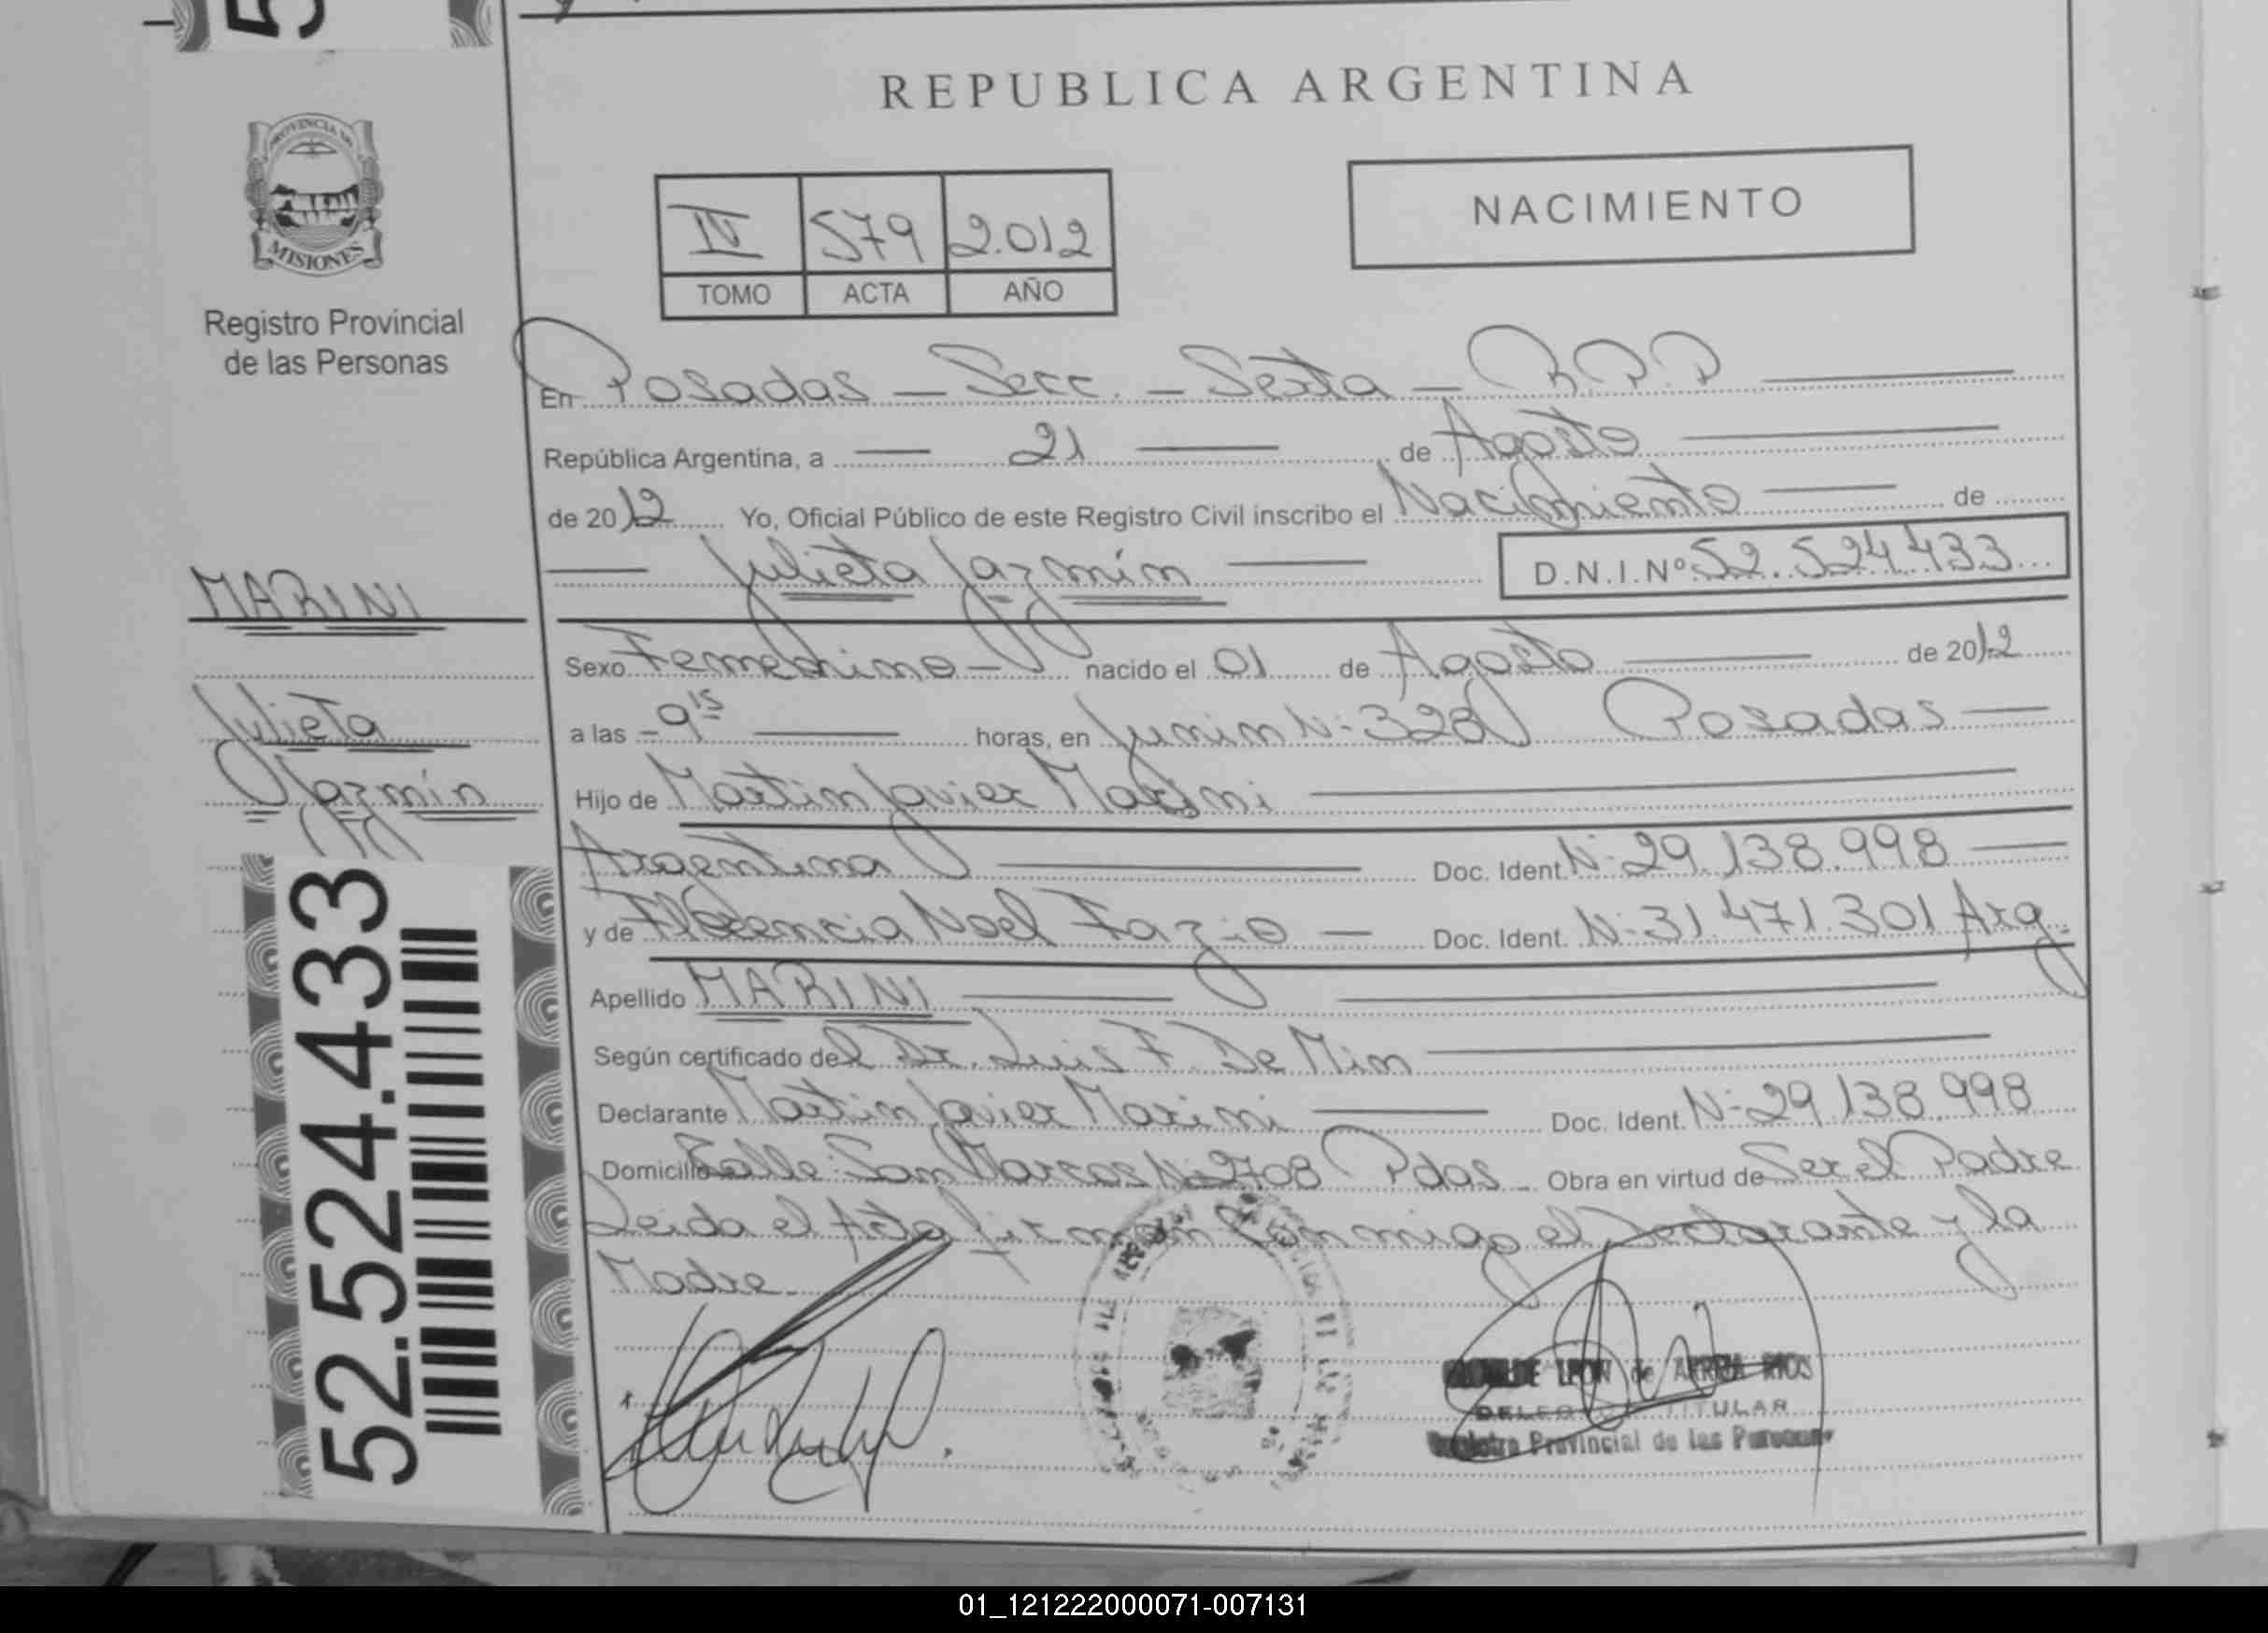 REPUBLICA ARGENTINA
PROVINCIA DE
MISIONES
Registro Provincial
de las Personas
IV 579 2.012
TOMO ACTA AÑO
NACIMIENTO
En Posadas - Secc. - Sexta - R.P.P
República Argentina, a 21 de Agosto
de 2012 Yo, Oficial Público de este Registro Civil inscribo el Nacimiento de
Julieta Jazmín D.N.I.Nº 52.524.433
MARINI
Julieta
Jazmín
Sexo Femenino - nacido el 01 de Agosto de 2012
a las 9 15 horas, en Junin Nº 328 Posadas
Hijo de Martin Javier Marini
Argentina Doc. Ident. Nº 29.138.998
y de Florencia Noel Fazio - Doc. Ident. Nº 31.471.301 Arg.
Apellido MARINI
Según certificado del Dr. Luis F. De Mim
Declarante Martin Javier Marini Doc. Ident. Nº 29.138.998
Domicilio Calle: San Marcos Nº 2708 Pdas - Obra en virtud de Ser el Padre
Leida el Acta firman conmigo el Declarante y la
Madre
52.524.433
de ARRUA RIOS
DELEGADA TITULAR
Registro Provincial de las Personas
01_121222000071-007131